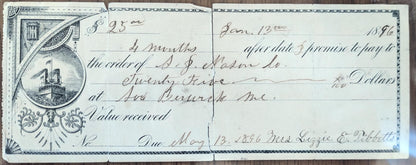 $ 25 00 Jan. 13 1896
4 months after date I promise to pay to
the order of S. J. Nason Co.
Twenty Five no/100 Dollars
at So. Berwick Me.
Value received
No. Due May 13. 1896 Mrs Lizzie E. Tibbetts